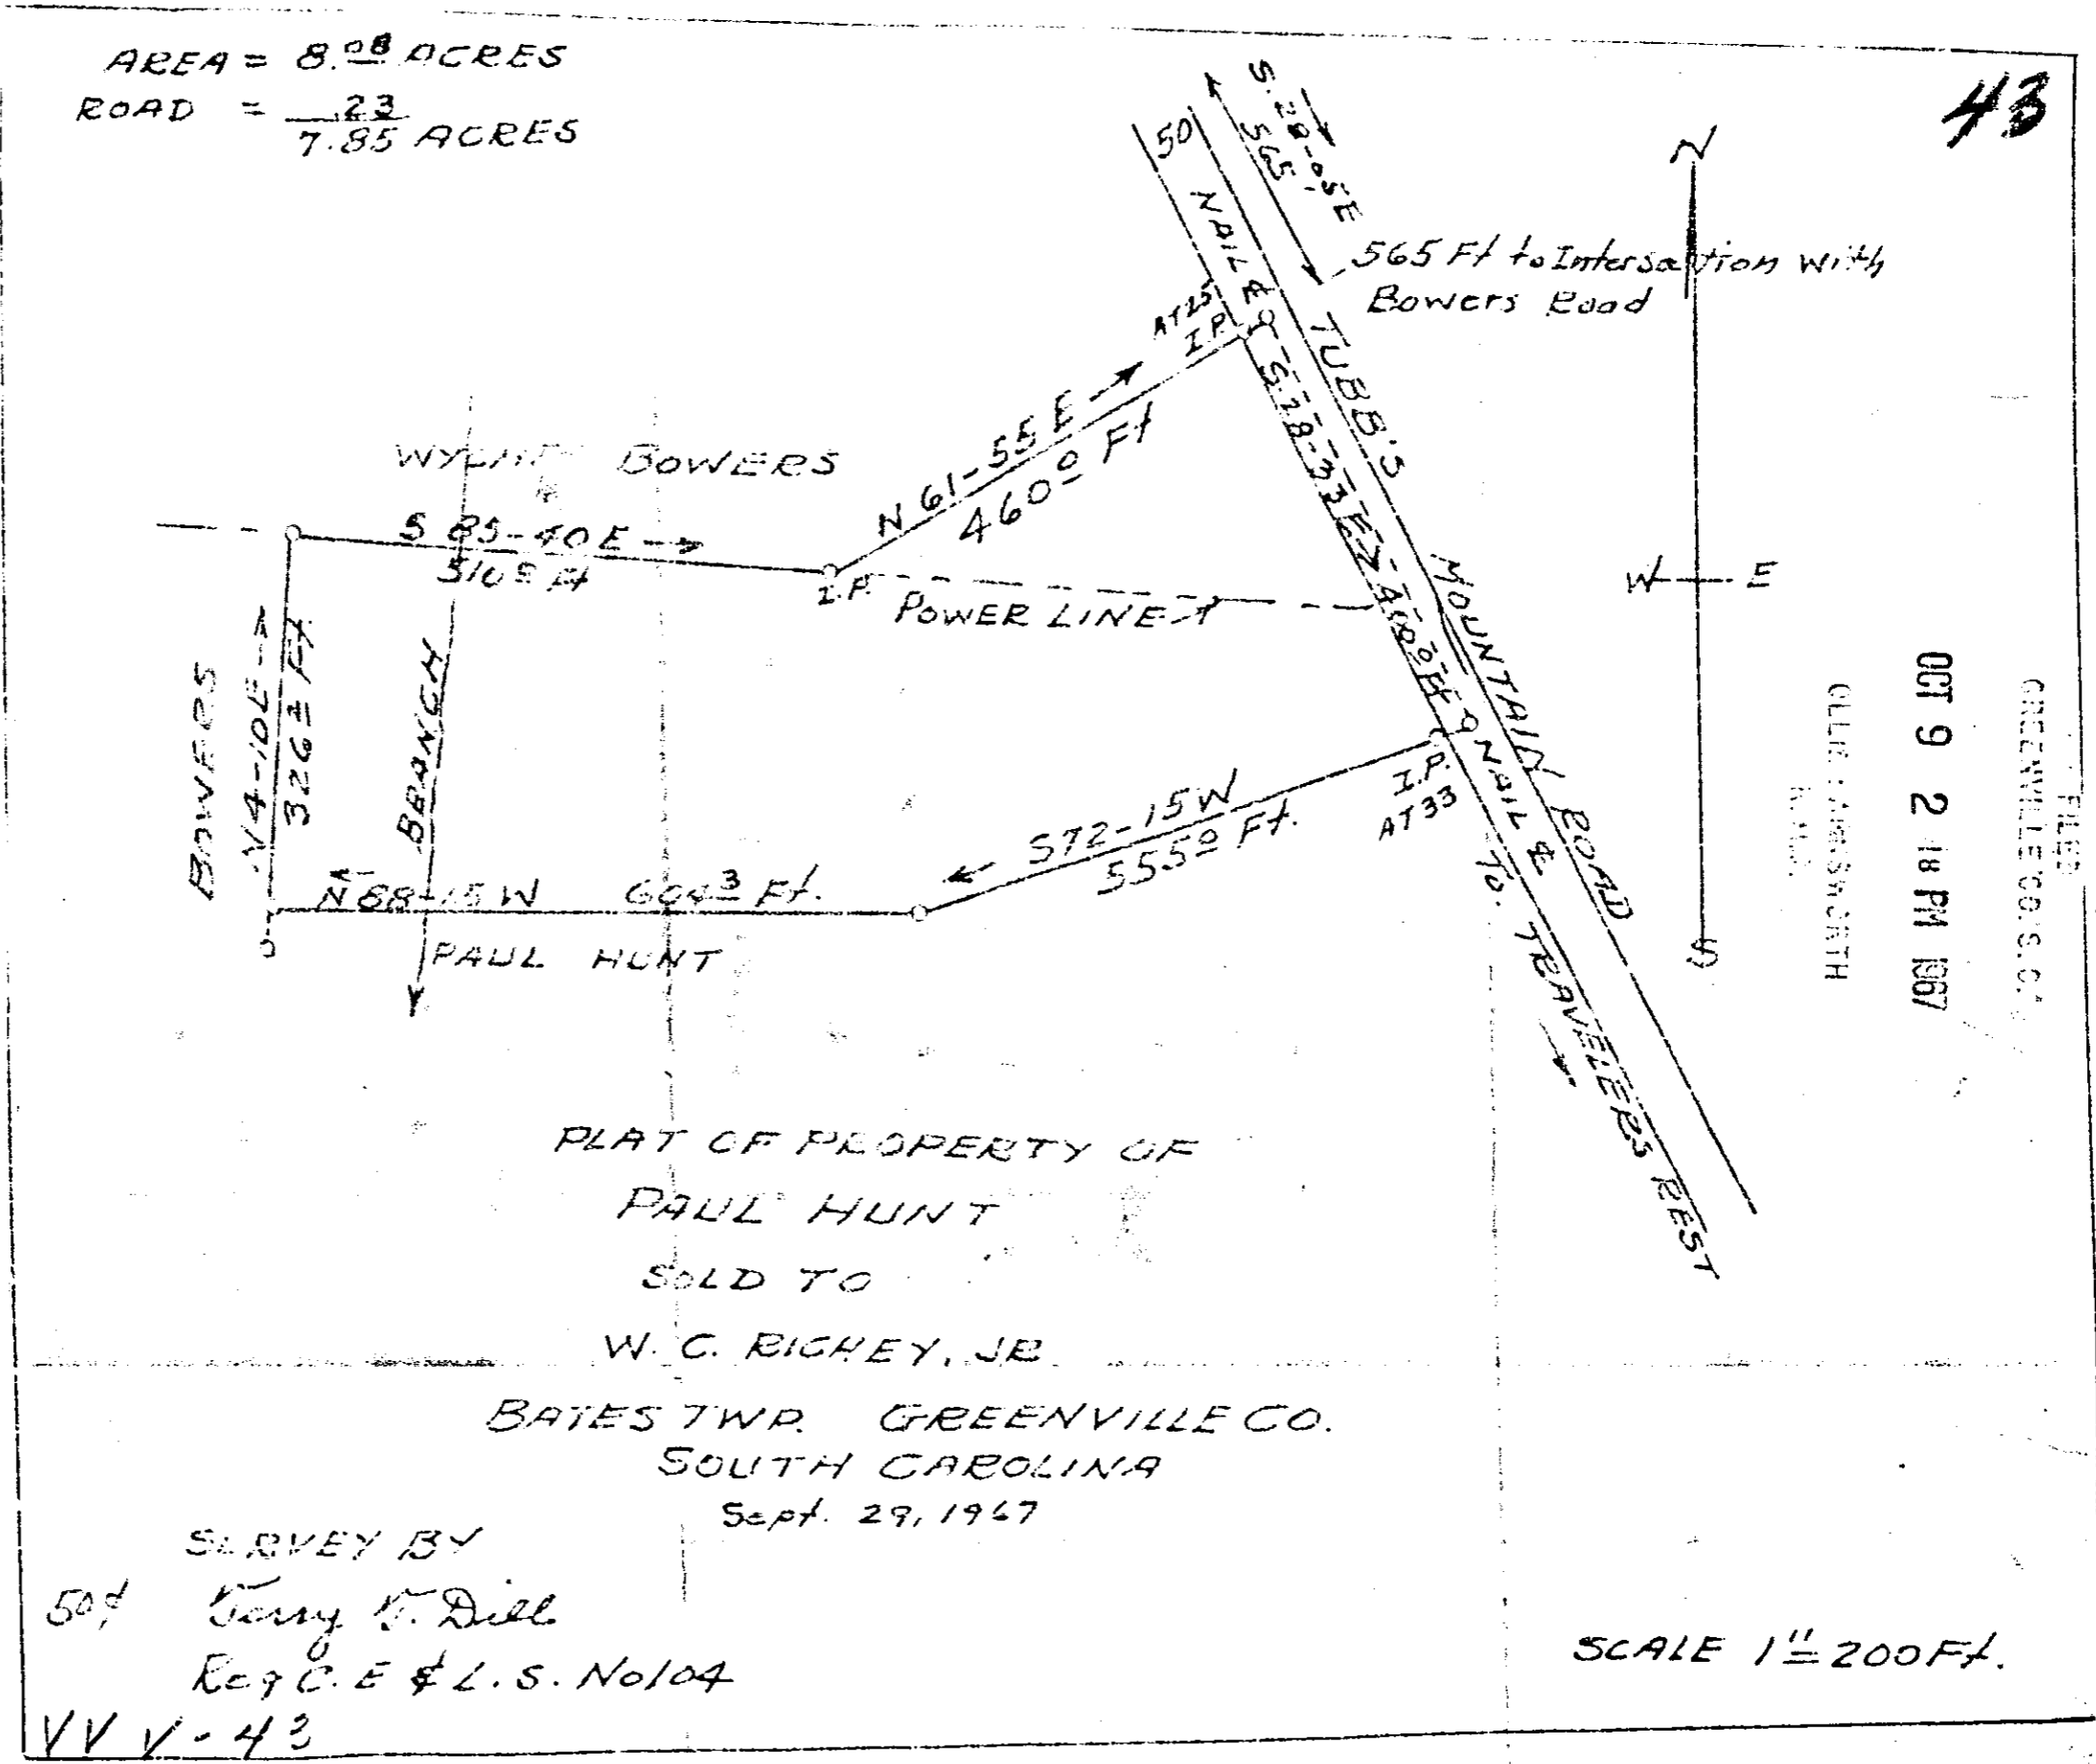 AREA = 8.08 ACRES
ROAD = .23
7.85 ACRES
43
50
S. 28-05E
565'
565 Ft to Intersection With
Bowers Road
N
W E
S
NAIL &
AT 25'
I.P.
TUBB'S MOUNTAIN ROAD
N 61-55 E
460.0 Ft
BOWERS
S 85-40E
Ft
I.P.
POWER LINE
400.0 Ft
BOWERS
N4-10E
326 Ft
BRANCH
S72-15W
555.0 Ft.
I.P.
AT 33
NAIL &
TO. TRAVELERS REST
N 88-15 W
Ft.
PAUL HUNT
FILED
GREENVILLE CO. S. C.
OCT 9 2 18 PM 1967
OLLIE FARNSWORTH
R.M.C.
PLAT OF PROPERTY OF
PAUL HUNT
SOLD TO
W. C. RICHEY, JR
BATES TWP. GREENVILLE CO.
SOUTH CAROLINA
Sept. 29, 1967
SURVEY BY
50¢ Terry T. Dill
Reg C. E & L. S. No 104
SCALE 1" = 200 Ft.
VV V-43